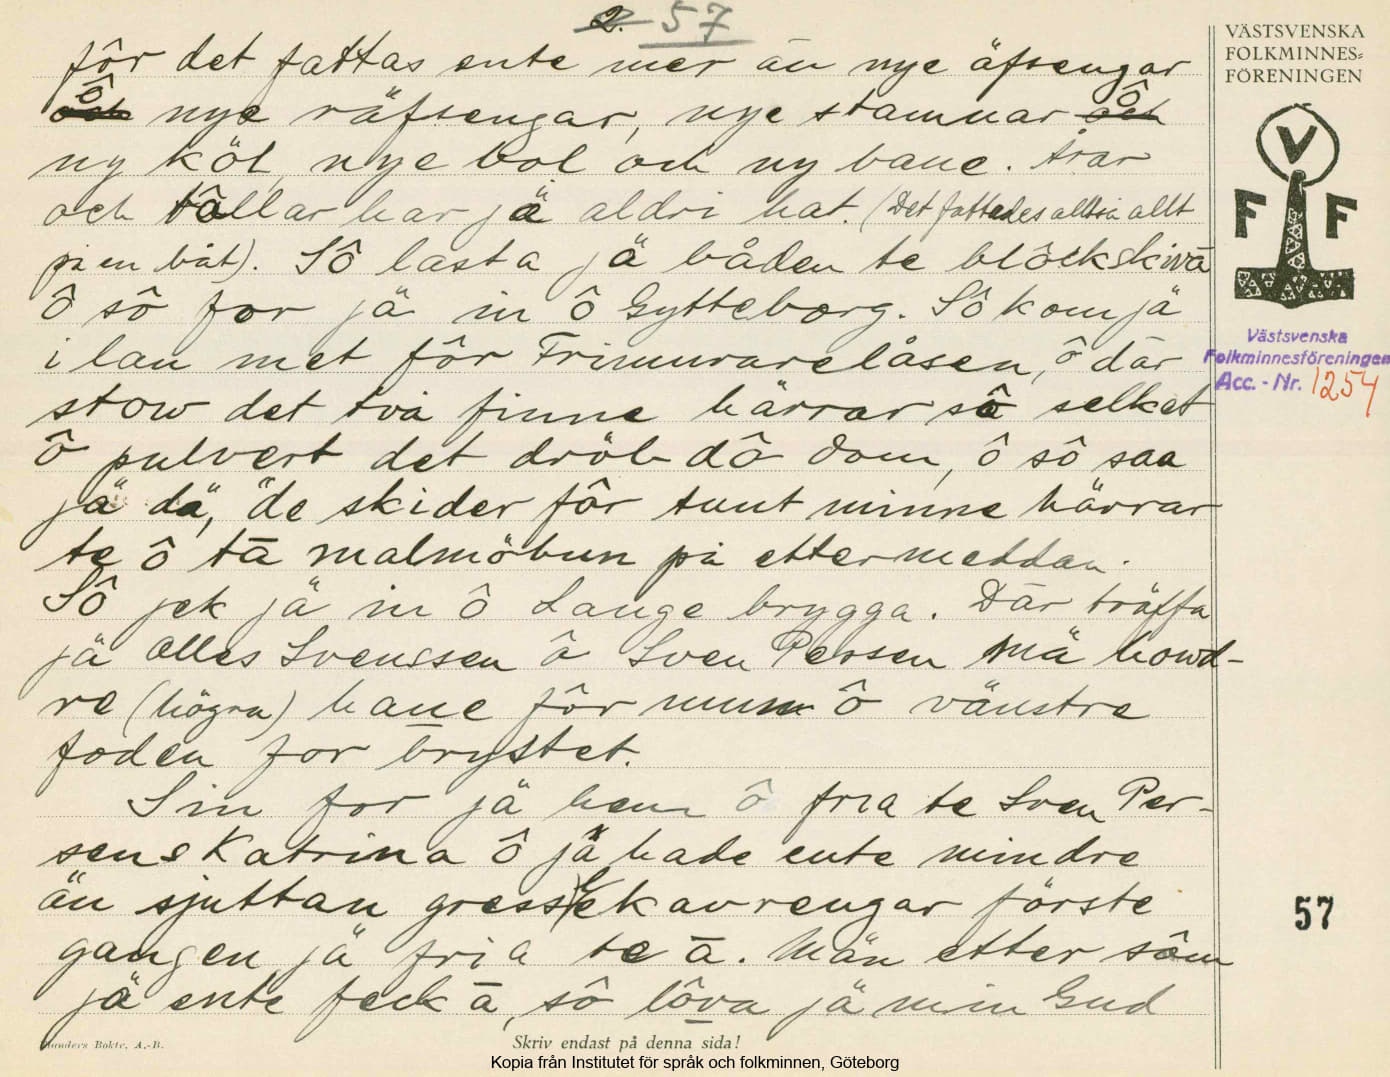 2. 57
VÄSTSVENSKA
FOLKMINNES=
FÖRENINGEN
fôr det fattas ente mer än nye äfsengar
ô nye räfsengar, nye stamnar ô
ny köl, nye bol och ny bane. Årar
och tôllar har jä aldri hat. (Det fattades alltså allt
på en båt). Sô lasta jä båden te blôckskivā
ô sô for jä in ô Gytteborg. Sô kom jä
i lan met fôr Frimurarelåsen, ô där
stow det två finne härrar sô selket
ô pulvert det dröb dô dom, ô sô saa
jä dä, "de skider fôr tunt minne härrar
te ô tā malmöbun på ettermeddan.
Sô jek jä in ô Lange brygga. Där träffa
jä Olles Svenssen ô Sven Persen mä howd-
re (högra) hane fôr mun ô vänstre
foden for brystet.
Sin for jä hem ô fria te Sven Per-
sens Katrina ô jä hade ente mindre
än sjuttan gressekavrengar förste
gangen jä fria te ā. Män etter sôm
jä ente feck ā, sô lôva jä min Gud
V
F F
Västsvenska
Folkminnesföreningen
Acc. - Nr. 1254
57
Skriv endast på denna sida!
Kopia från Institutet för språk och folkminnen, Göteborg